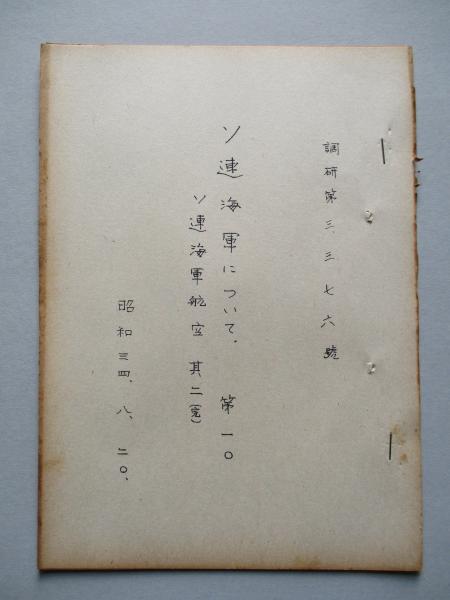 調研第三、三七六號
ソ連海軍について、 第一〇
ソ連海軍航空 其二(完)
昭和三四、八、二〇、